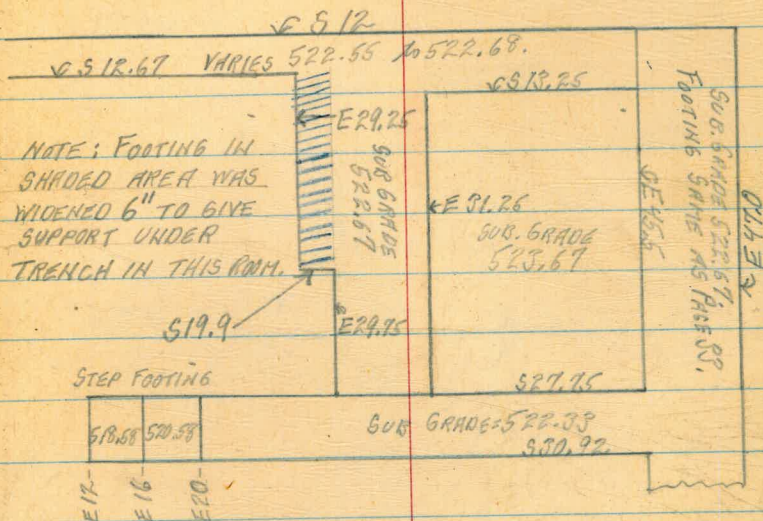 S 12
S 12.67 VARIES 522.55 to 522.68.
S 13.25
E 29.25
NOTE: FOOTING IN
SHADED AREA WAS
WIDENED 6" TO GIVE
SUPPORT UNDER
TRENCH IN THIS ROOM.
SUB GRADE
522.67
E 31.26
SUB. GRADE
523.67
SUB. GRADE 522.67.
FOOTING SAME AS PAGE 33.
S19.9
E29.75
STEP FOOTING
S27.75
518.58 520.58
SUB GRADE = 522.33
S30.92
E 12
E 16
E 20